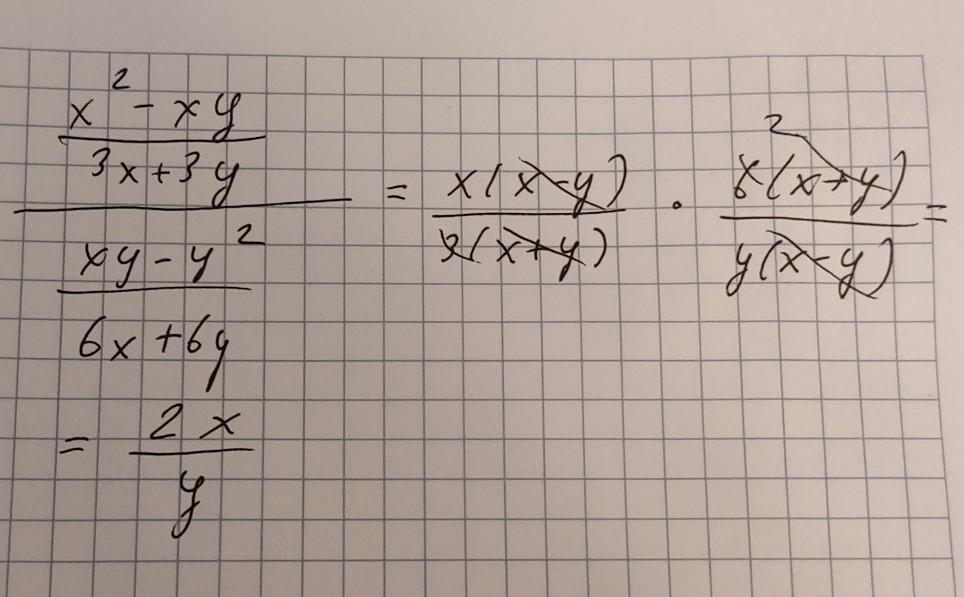 x² - xy
3x+3y
xy - y²
6x+6y
= x(x-y) / 3(x+y) · 2 6(x+y) / y(x-y) =
= 2x / y